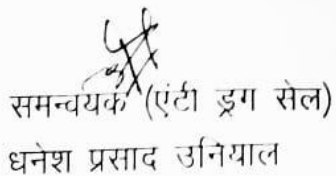 समन्वयक (एंटी ड्रग सेल)
धनेश प्रसाद उनियाल